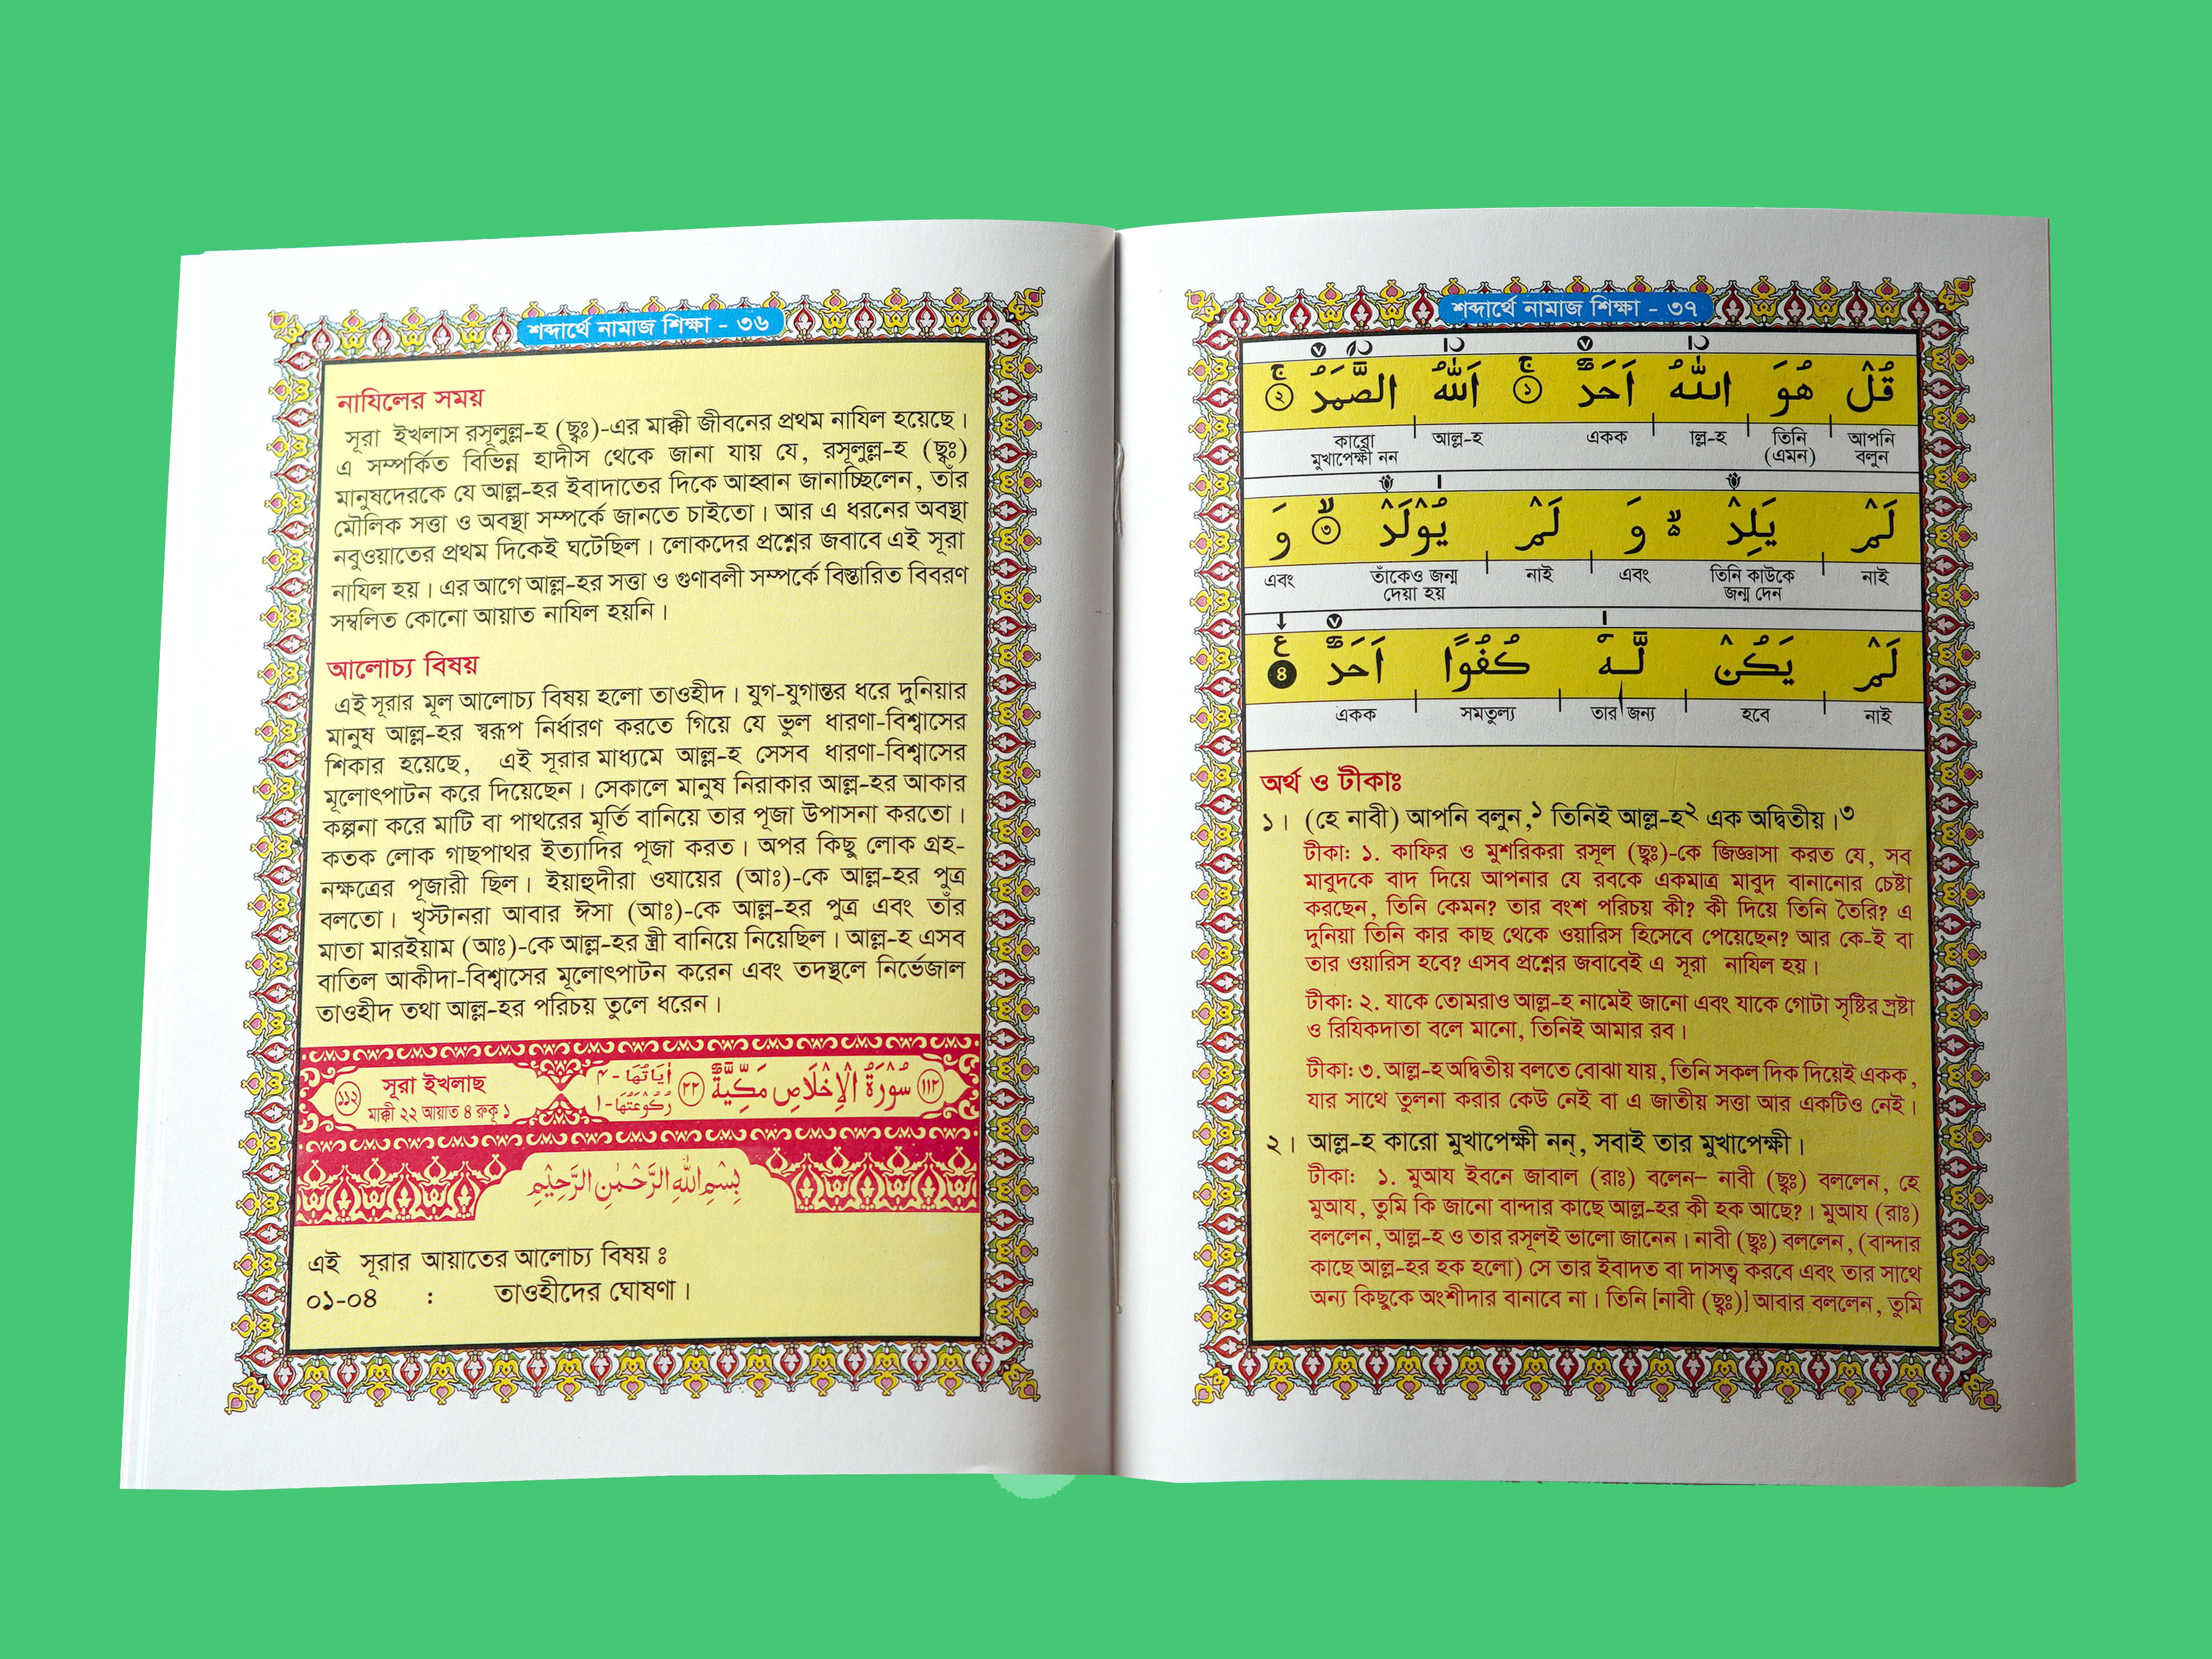 শব্দার্থে নামাজ শিক্ষা - ৩৬
নাযিলের সময়
সূরা ইখলাস রসূলুল্ল-হ (ছ্বঃ)-এর মাক্কী জীবনের প্রথম নাযিল হয়েছে।
এ সম্পর্কিত বিভিন্ন হাদীস থেকে জানা যায় যে, রসূলুল্ল-হ (ছ্বঃ)
মানুষদেরকে যে আল্ল-হর ইবাদাতের দিকে আহ্বান জানাচ্ছিলেন, তাঁর
মৌলিক সত্তা ও অবস্থা সম্পর্কে জানতে চাইতো। আর এ ধরনের অবস্থা
নবুওয়াতের প্রথম দিকেই ঘটেছিল। লোকদের প্রশ্নের জবাবে এই সূরা
নাযিল হয়। এর আগে আল্ল-হর সত্তা ও গুণাবলী সম্পর্কে বিস্তারিত বিবরণ
সম্বলিত কোনো আয়াত নাযিল হয়নি।
আলোচ্য বিষয়
এই সূরার মূল আলোচ্য বিষয় হলো তাওহীদ। যুগ-যুগান্তর ধরে দুনিয়ার
মানুষ আল্ল-হর স্বরূপ নির্ধারণ করতে গিয়ে যে ভুল ধারণা-বিশ্বাসের
শিকার হয়েছে, এই সূরার মাধ্যমে আল্ল-হ সেসব ধারণা-বিশ্বাসের
মূলোৎপাটন করে দিয়েছেন। সেকালে মানুষ নিরাকার আল্ল-হর আকার
কল্পনা করে মাটি বা পাথরের মূর্তি বানিয়ে তার পূজা উপাসনা করতো।
কতক লোক গাছপাথর ইত্যাদির পূজা করত। অপর কিছু লোক গ্রহ-
নক্ষত্রের পূজারী ছিল। ইয়াহুদীরা ওযায়ের (আঃ)-কে আল্ল-হর পুত্র
বলতো। খৃস্টানরা আবার ঈসা (আঃ)-কে আল্ল-হর পুত্র এবং তাঁর
মাতা মারইয়াম (আঃ)-কে আল্ল-হর স্ত্রী বানিয়ে নিয়েছিল। আল্ল-হ এসব
বাতিল আকীদা-বিশ্বাসের মূলোৎপাটন করেন এবং তদস্থলে নির্ভেজাল
তাওহীদ তথা আল্ল-হর পরিচয় তুলে ধরেন।
১১২ সূরা ইখলাছ
মাক্কী ২২ আয়াত ৪ রুকূ ১
١١٢ سُوْرَةُ الْاِخْلَاصِ مَكِّيَّةٌ ٢٢
اٰيَاتُهَا - ٤
رُكُوْعَتُهَا - ١
بِسْمِ اللهِ الرَّحْمٰنِ الرَّحِيْمِ
এই সূরার আয়াতের আলোচ্য বিষয় ঃ
০১-০৪ : তাওহীদের ঘোষণা।
শব্দার্থে নামাজ শিক্ষা - ৩৭
قُلْ هُوَ اللّٰهُ اَحَدٌ ۚ ① اَللّٰهُ الصَّمَدُ ۚ ②
আপনি বলুন তিনি (এমন) ল্ল-হ একক আল্ল-হ কারো মুখাপেক্ষী নন
لَمْ يَلِدْ ۙ وَ لَمْ يُوْلَدْ ۙ ③ وَ
নাই তিনি কাউকে জন্ম দেন এবং নাই তাঁকেও জন্ম দেয়া হয় এবং
لَمْ يَكُنْ لَّهٗ كُفُوًا اَحَدٌ ع ④
নাই হবে তার জন্য সমতুল্য একক
অর্থ ও টীকাঃ
১। (হে নাবী) আপনি বলুন,১ তিনিই আল্ল-হ২ এক অদ্বিতীয়।৩
টীকা: ১. কাফির ও মুশরিকরা রসূল (ছ্বঃ)-কে জিজ্ঞাসা করত যে, সব
মাবুদকে বাদ দিয়ে আপনার যে রবকে একমাত্র মাবুদ বানানোর চেষ্টা
করছেন, তিনি কেমন? তার বংশ পরিচয় কী? কী দিয়ে তিনি তৈরি? এ
দুনিয়া তিনি কার কাছ থেকে ওয়ারিস হিসেবে পেয়েছেন? আর কে-ই বা
তার ওয়ারিস হবে? এসব প্রশ্নের জবাবেই এ সূরা নাযিল হয়।
টীকা: ২. যাকে তোমরাও আল্ল-হ নামেই জানো এবং যাকে গোটা সৃষ্টির স্রষ্টা
ও রিযিকদাতা বলে মানো, তিনিই আমার রব।
টীকা: ৩. আল্ল-হ অদ্বিতীয় বলতে বোঝা যায়, তিনি সকল দিক দিয়েই একক,
যার সাথে তুলনা করার কেউ নেই বা এ জাতীয় সত্তা আর একটিও নেই।
২। আল্ল-হ কারো মুখাপেক্ষী নন্, সবাই তার মুখাপেক্ষী।
টীকা: ১. মুআয ইবনে জাবাল (রাঃ) বলেন– নাবী (ছ্বঃ) বললেন, হে
মুআয, তুমি কি জানো বান্দার কাছে আল্ল-হর কী হক আছে?। মুআয (রাঃ)
বললেন, আল্ল-হ ও তার রসূলই ভালো জানেন। নাবী (ছ্বঃ) বললেন, (বান্দার
কাছে আল্ল-হর হক হলো) সে তার ইবাদত বা দাসত্ব করবে এবং তার সাথে
অন্য কিছুকে অংশীদার বানাবে না। তিনি [নাবী (ছ্বঃ)] আবার বললেন, তুমি